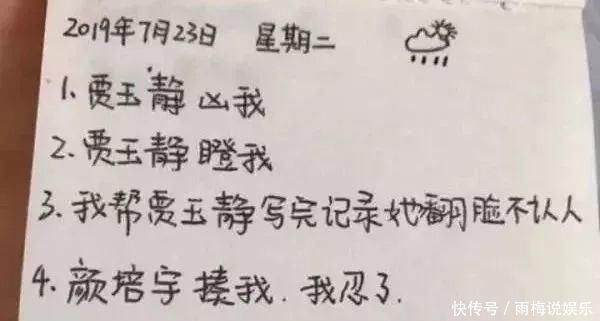 2019年7月23日 星期二
1.贾玉静凶我
2.贾玉静瞪我
3.我帮贾玉静写完记录她翻脸不认人
4.颜培宇揍我.我忍了.
快传号/雨梅说娱乐